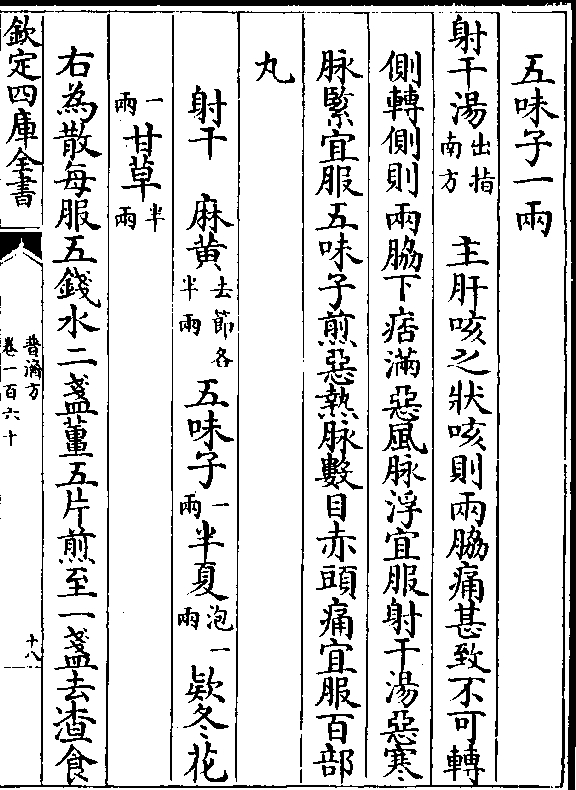 五味子一兩
射干湯出指南方　主肝咳之狀咳則兩脇痛甚致不可轉
側轉側則兩脇下痞滿惡風脉浮宜服射干湯惡寒
脉緊宜服五味子煎惡熱脉數目赤頭痛宜服百部
丸
射干　麻黄去節各半兩　五味子一兩　半夏泡一兩　欵冬花
一兩　甘草半兩
右為散每服五錢水二盞薑五片煎至一盞去渣食
欽定四庫全書
普濟方
卷一百六十
十八